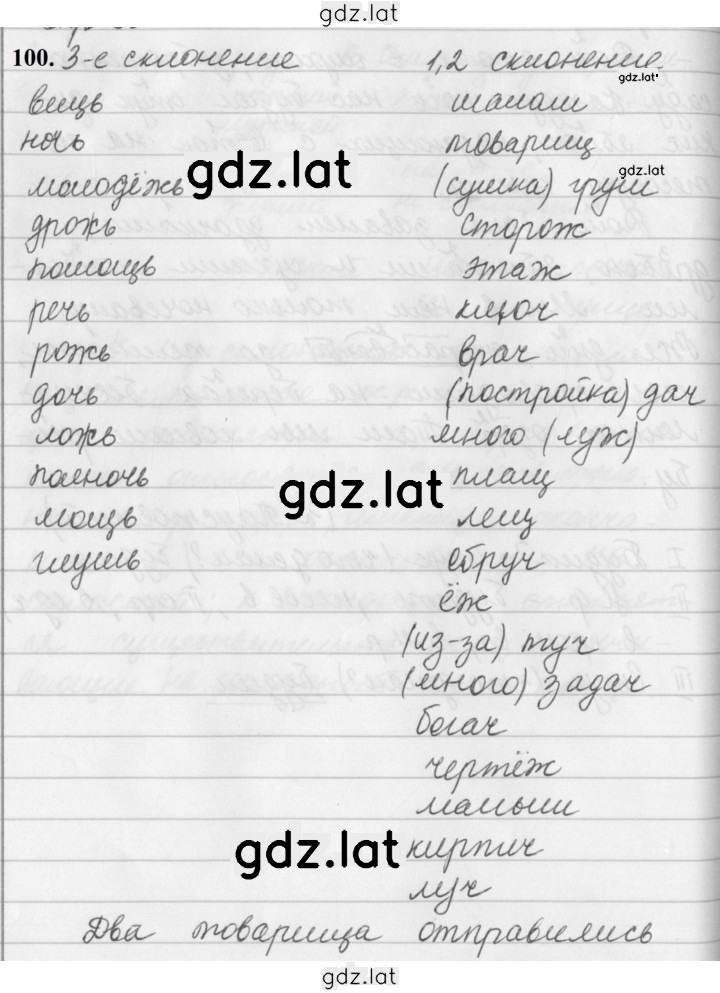 gdz.lat
100. 3-е склонение 1,2 склонение.
gdz.lat
вещь шалаш
ночь товарищ
gdz.lat
молодёжь (сушка) груш
gdz.lat
дрожь сторож
помощь этаж
речь ключ
рожь врач
дочь (постройка) дач
ложь много (луж)
полночь плащ
gdz.lat
мощь лещ
глушь обруч
ёж
(из-за) туч
(много) задач
богач
чертёж
малыш
gdz.lat
кирпич
луч
Два товарища отправились
gdz.lat